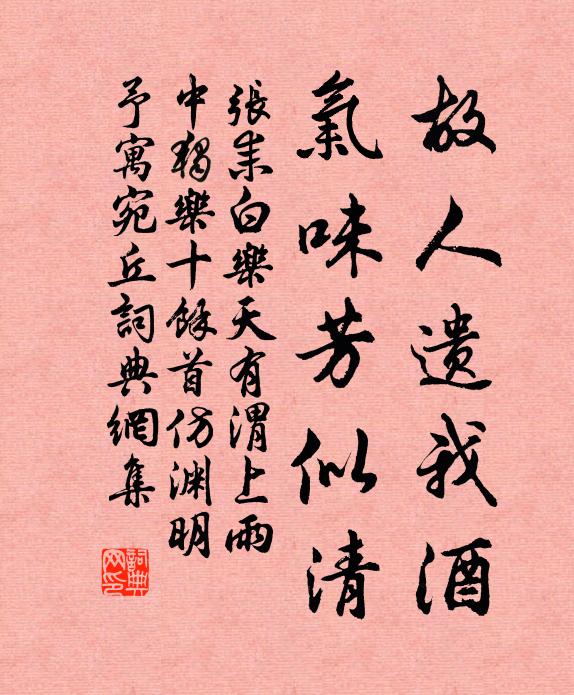 故人遺我酒
氣味芳似清
張耒白樂天有渭上雨
中獨樂十餘首仿淵明
予寓宛丘詞典網集
詞典网印